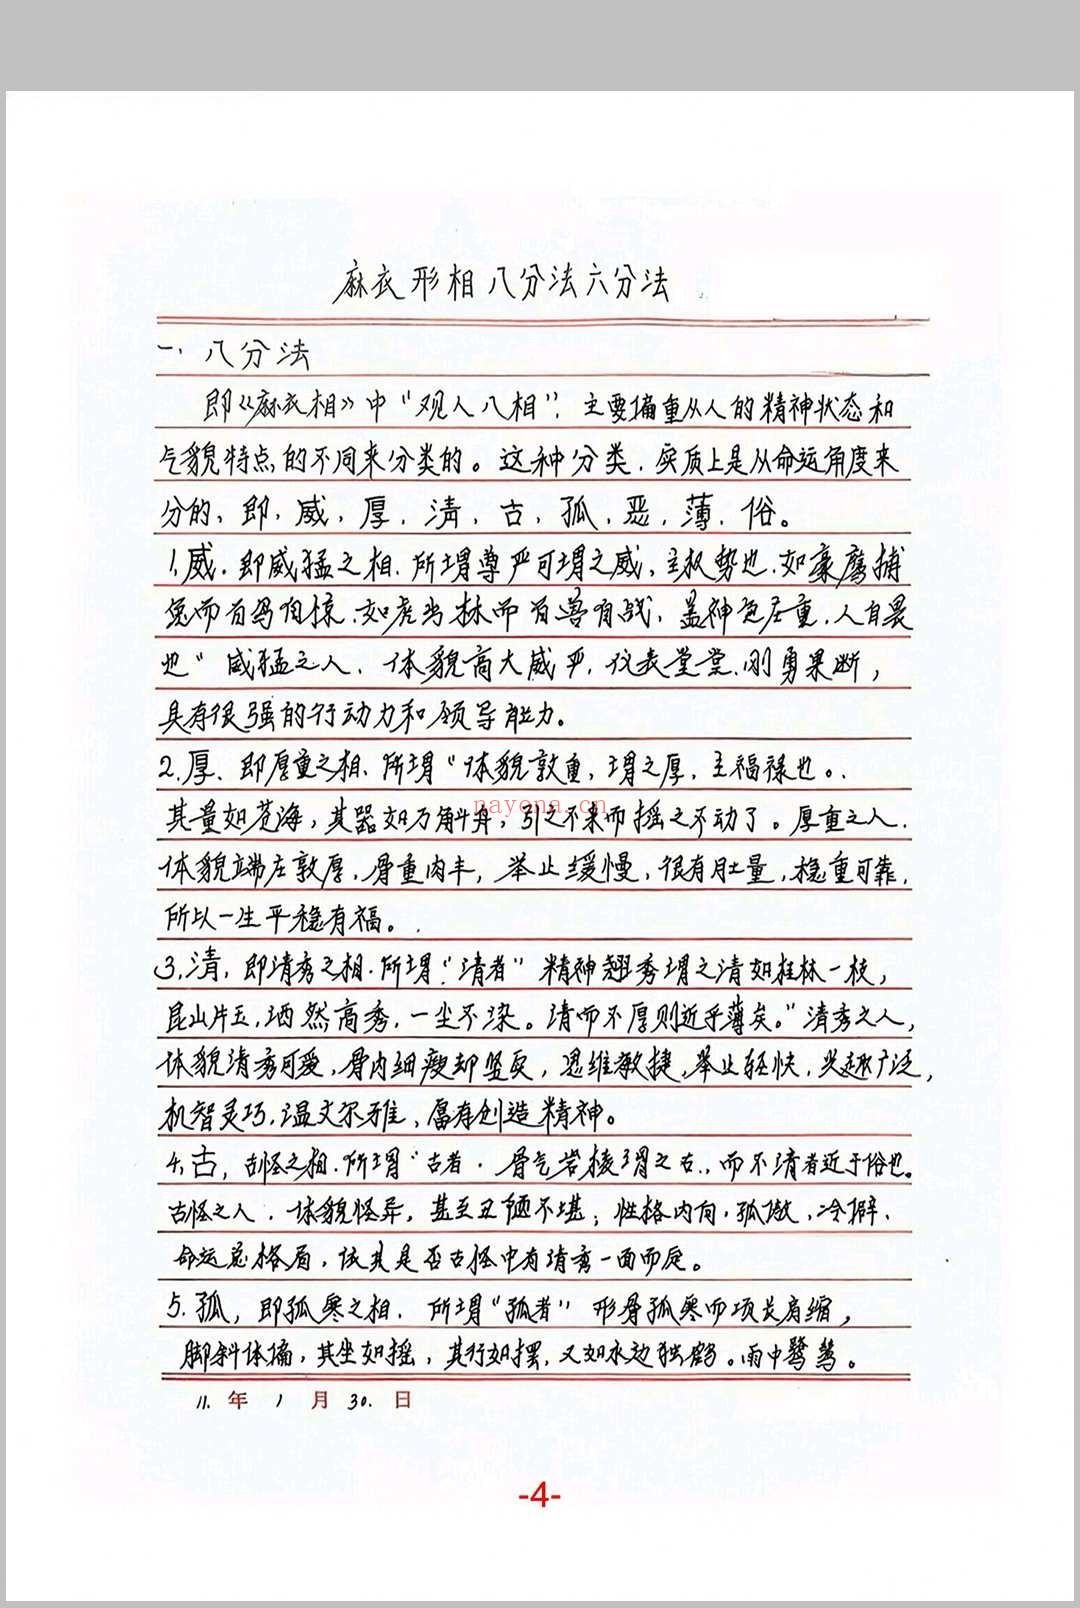 麻衣形相八分法六分法
一、八分法
即《麻衣相》中“观人八相”，主要偏重从人的精神状态和
气貌特点的不同来分类的。这种分类，实质上是从命运角度来
分的，即，威，厚，清，古，孤，恶，薄，俗。
1，威，即威猛之相，所谓尊严可谓之威，主权势也，如豪鹰捕
兔而百鸟自惊，如虎出林而百兽自战，盖神色庄重，人自畏
也”威猛之人，体貌高大威严，仪表堂堂，刚勇果断，
具有很强的行动力和领导能力。
2，厚，即厚重之相，所谓“体貌敦重，谓之厚，主福禄也。
其量如苍海，其器如万斛舟，引之不来而摇之不动了。厚重之人，
体貌端庄敦厚，骨重肉丰，举止缓慢，很有肚量，稳重可靠，
所以一生平稳有福。
3，清，即清秀之相，所谓“清者”精神翘秀谓之清如桂林一枝，
昆山片玉，洒然高秀，一尘不染。清而不厚则近乎薄矣。”清秀之人，
体貌清秀可爱，骨肉细瘦却坚实，思维敏捷，举止轻快，兴趣广泛，
机智灵巧，温文尔雅，富有创造精神。
4，古，古怪之相，所谓“古者，骨气岩棱谓之古，而不清者近于俗也。
古怪之人，体貌怪异，甚至丑陋不堪；性格内向，孤傲，冷僻，
命运总格局，依其是否古怪中有清秀一面而定。
5，孤，即孤寒之相，所谓“孤者”形骨孤寒而项长肩缩，
脚斜体偏，其坐如摇，其行如摆，又如水边独鹤。雨中鹭鸶。
11．年1月30．日
nayona.cn
-4-